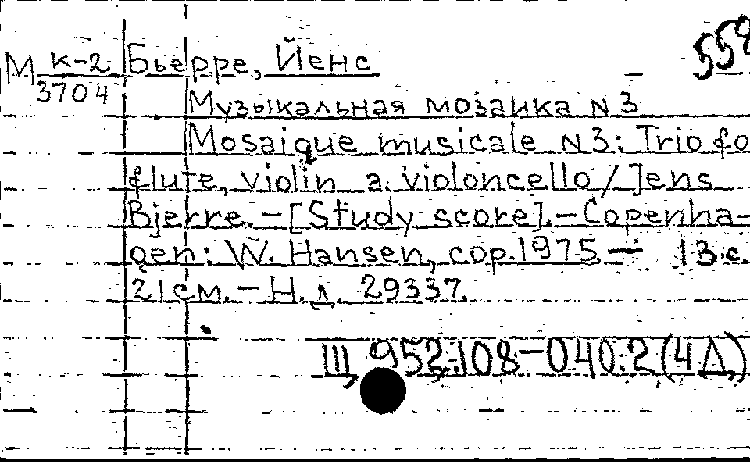 М К-2 Бьерре, Йенс 558
3704
Музыкальная мозаика N 3
Mosaique musicale N3: Trio fo
flute, violin a. violoncello / Jens
Bjerre. - [Study score]. - Copenha-
gen: W. Hansen, cop. 1975 - 13 с.
21 см. - Н. л. 29337.
Щ 952.108-040.2 (4Д)